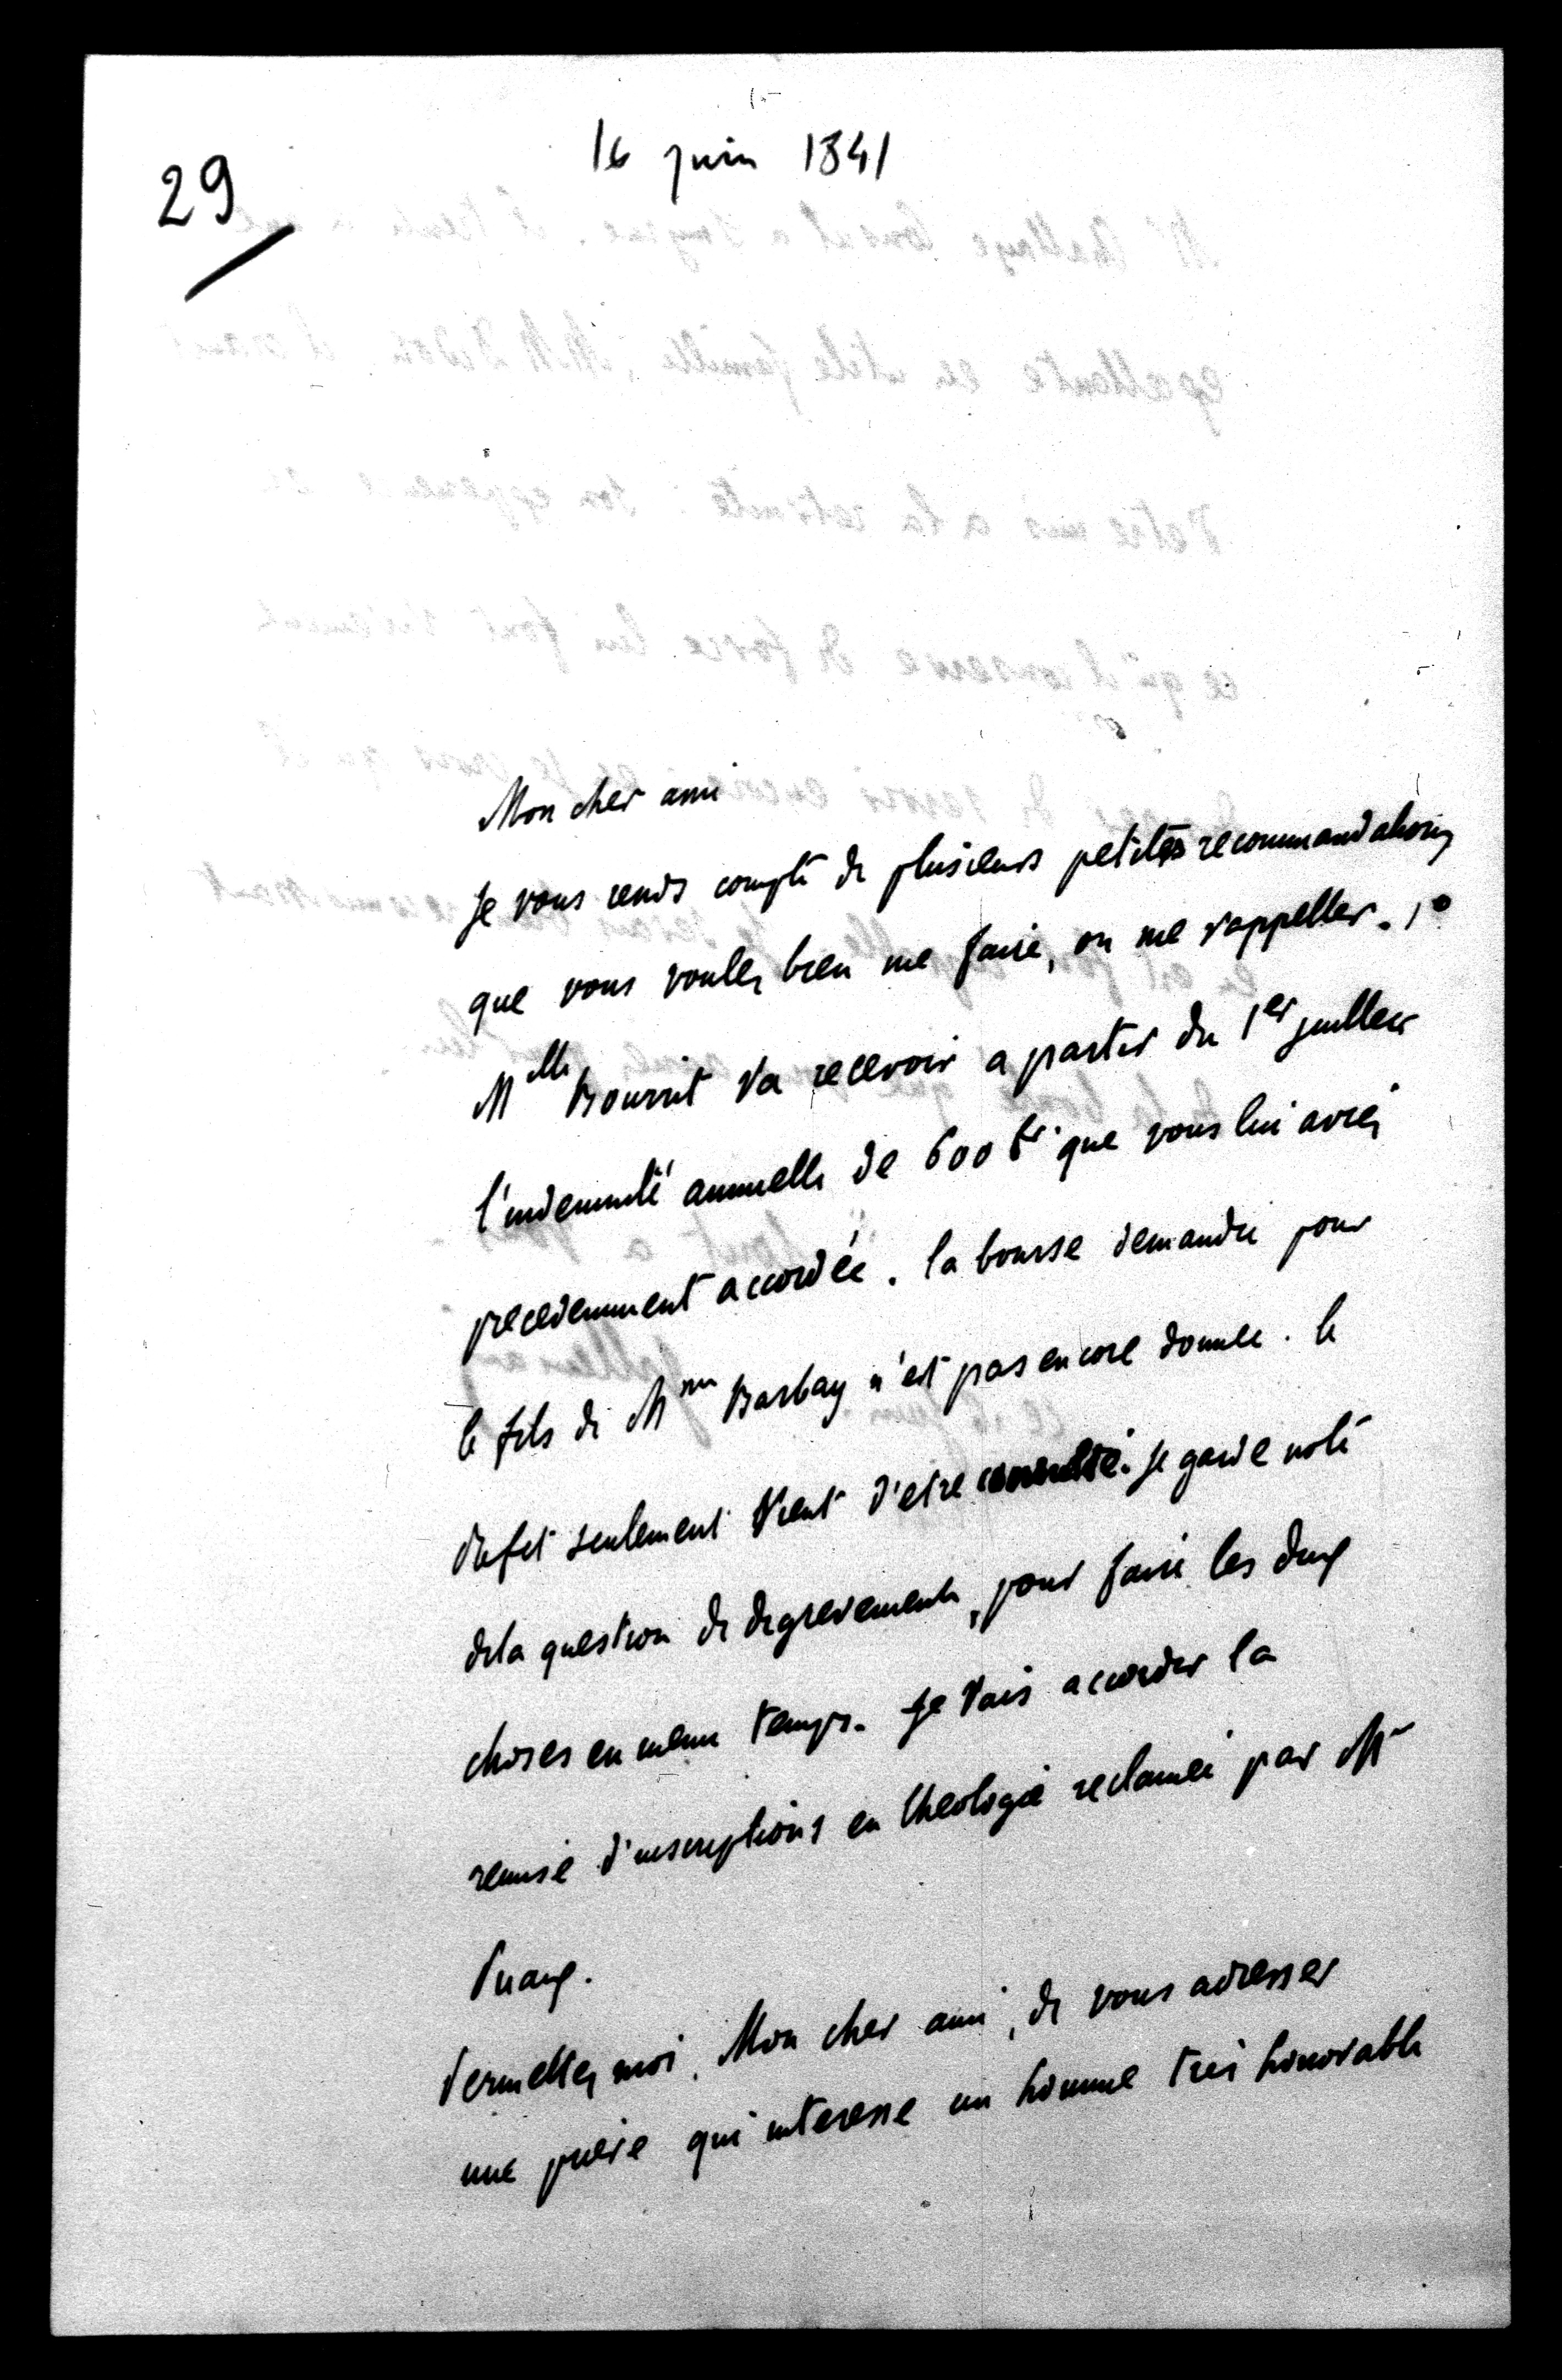 29
16 juin 1841
Mon cher ami
Je vous rends compte de plusieurs petites recommandations
que vous voulez bien me faire, ou me rappeller. 1º
Melle Bourrit va recevoir a partir du 1er juillet
l'indemnité annuelle de 600 fr. que vous lui aviez
precedemment accordée. la bourse demandée pour
le fils de Mme Barbay n'est pas encore donnée. le
prefet seulement vient d'etre consulté. Je garde note
de la question de degrevement, pour faire les deux
choses en meme temps. Je vais accorder la
remise d'inscriptions en theologie reclamée par Mr
Permettez moi, Mon cher ami, de vous adresser
une priere qui interesse un homme tres honorable